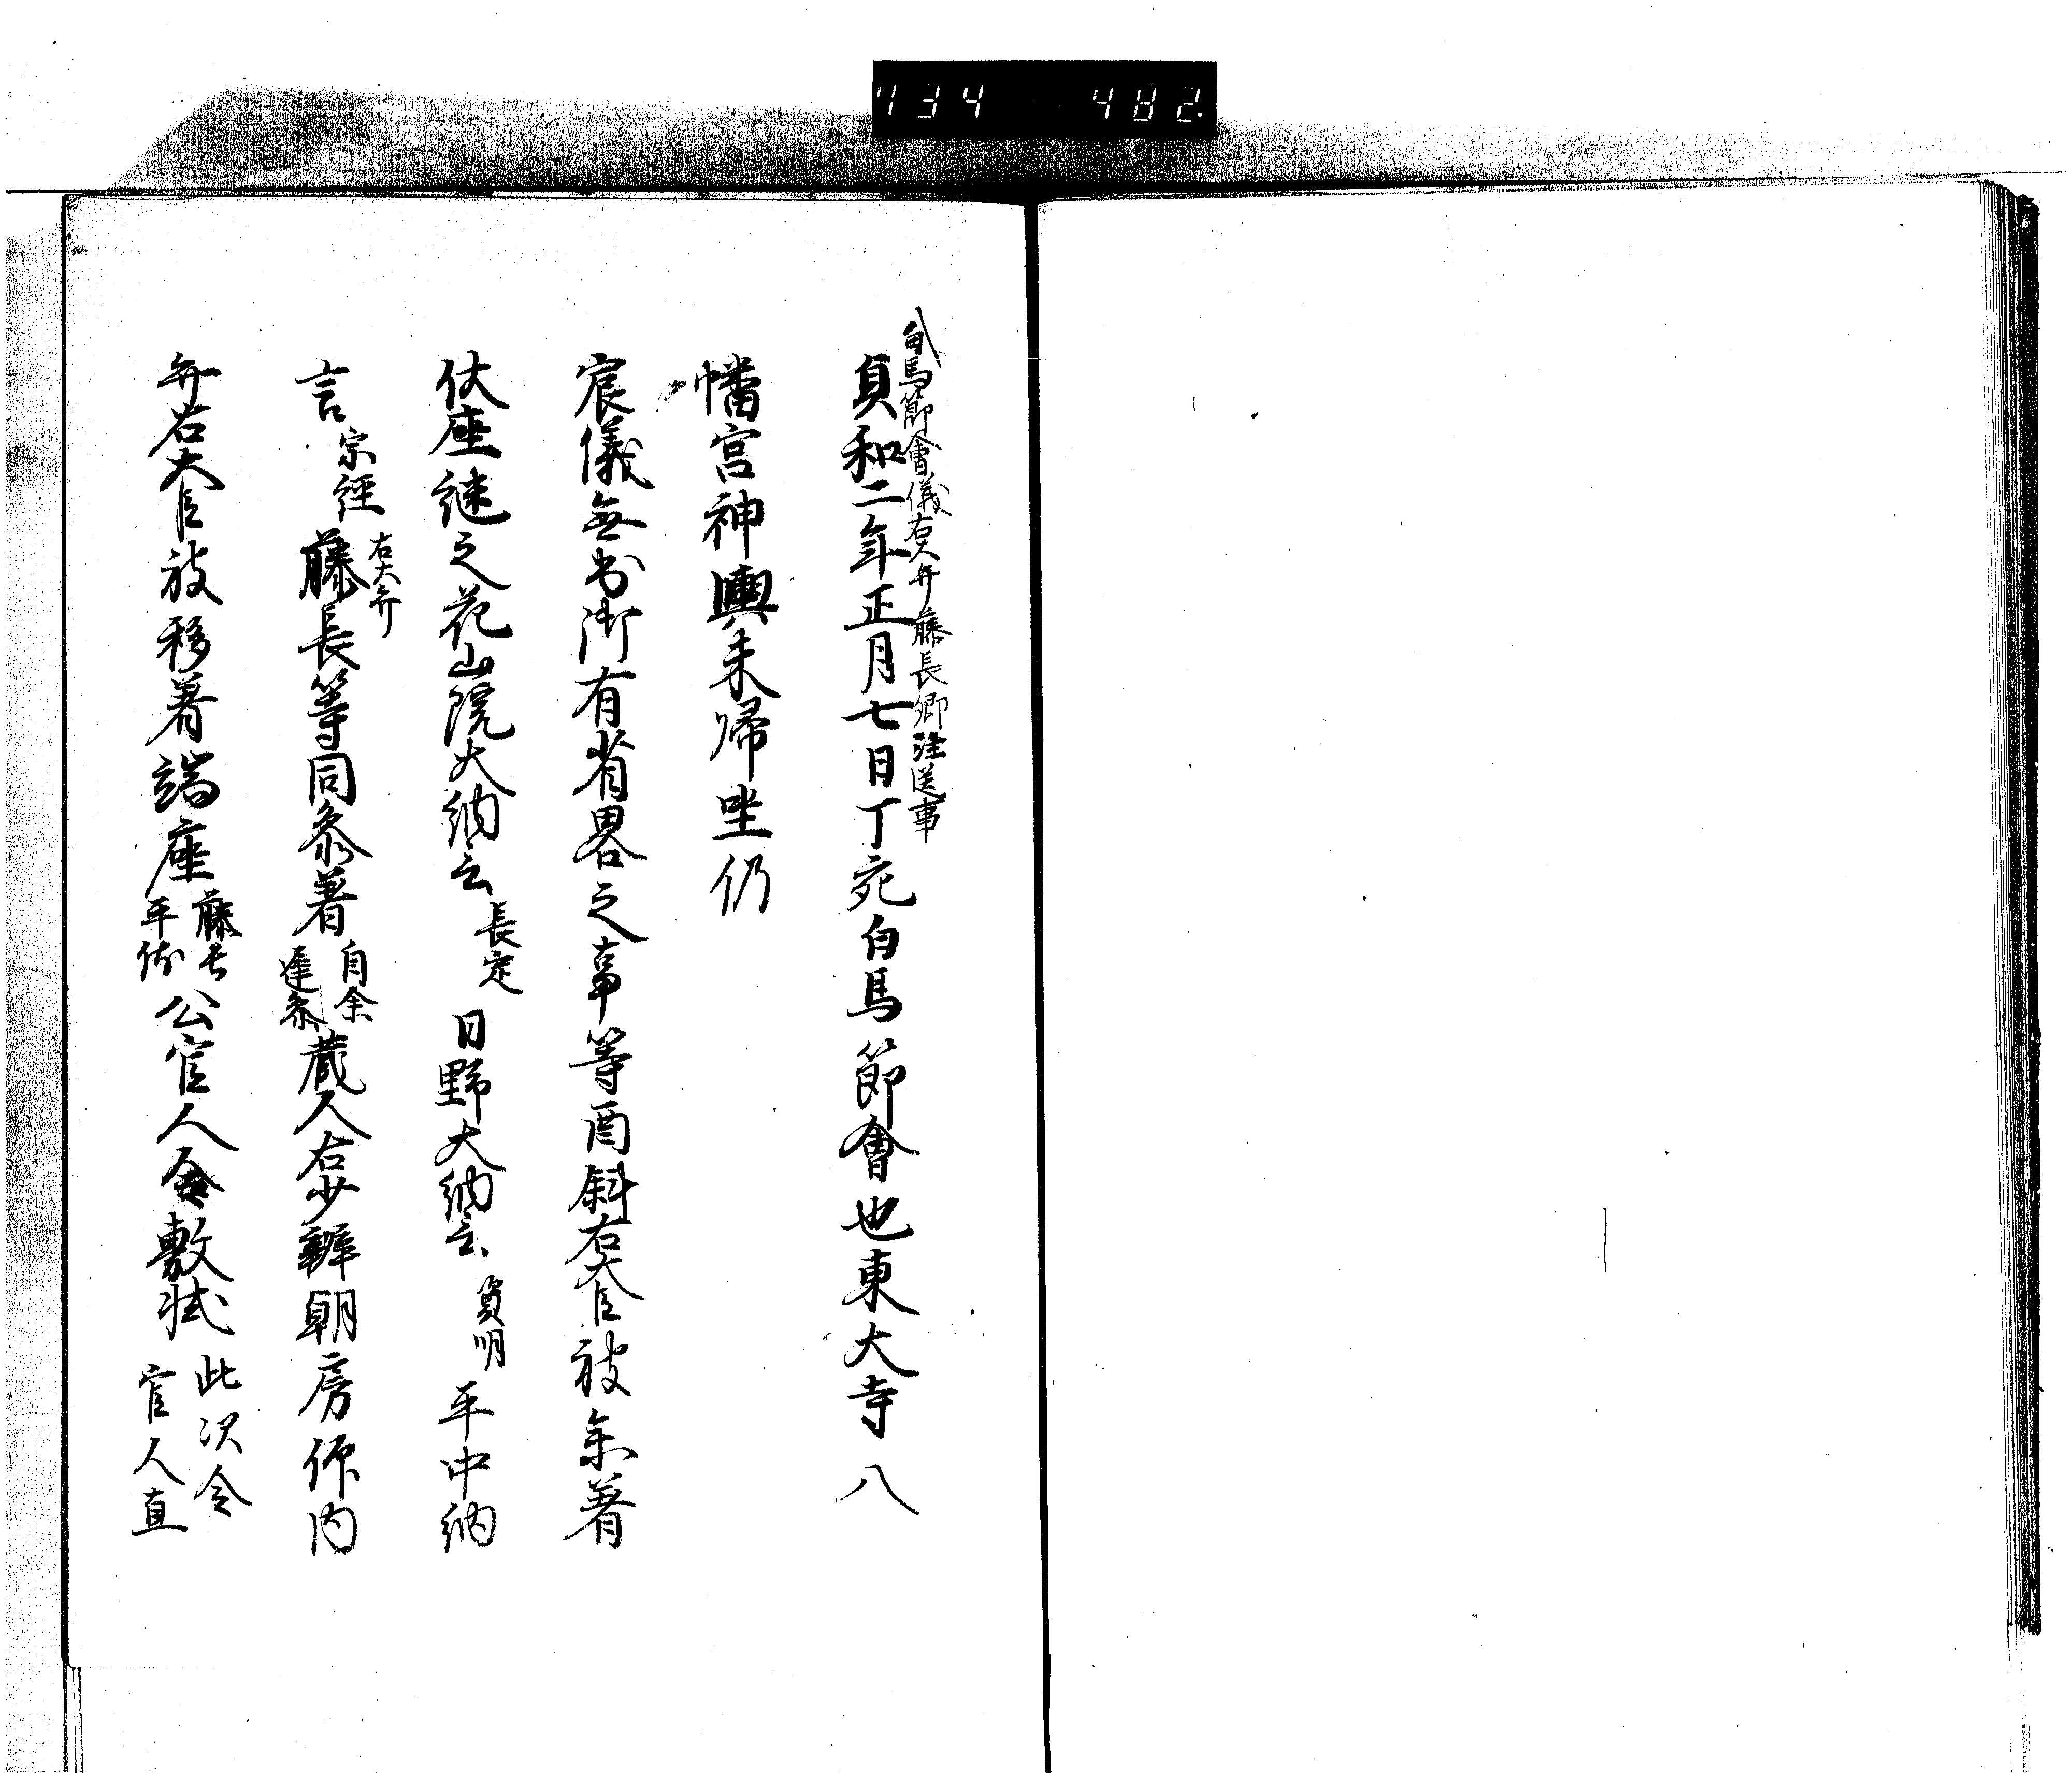 734 482
白馬節會儀右大弁藤長卿注送事
貞和二年正月七日丁死白馬節會也東大寺八
幡宮神輿未帰坐仍
宸儀無出御有省畧之事等酉斜右大臣被参著
仗座継之花山院大納言長定日野大納言資明平中納
言宗経藤長等右大弁同参著自余遅参蔵人右少辨朝房仰内
弁右大臣被移著端座藤長平伏公官人令敷軾此次令
官人直